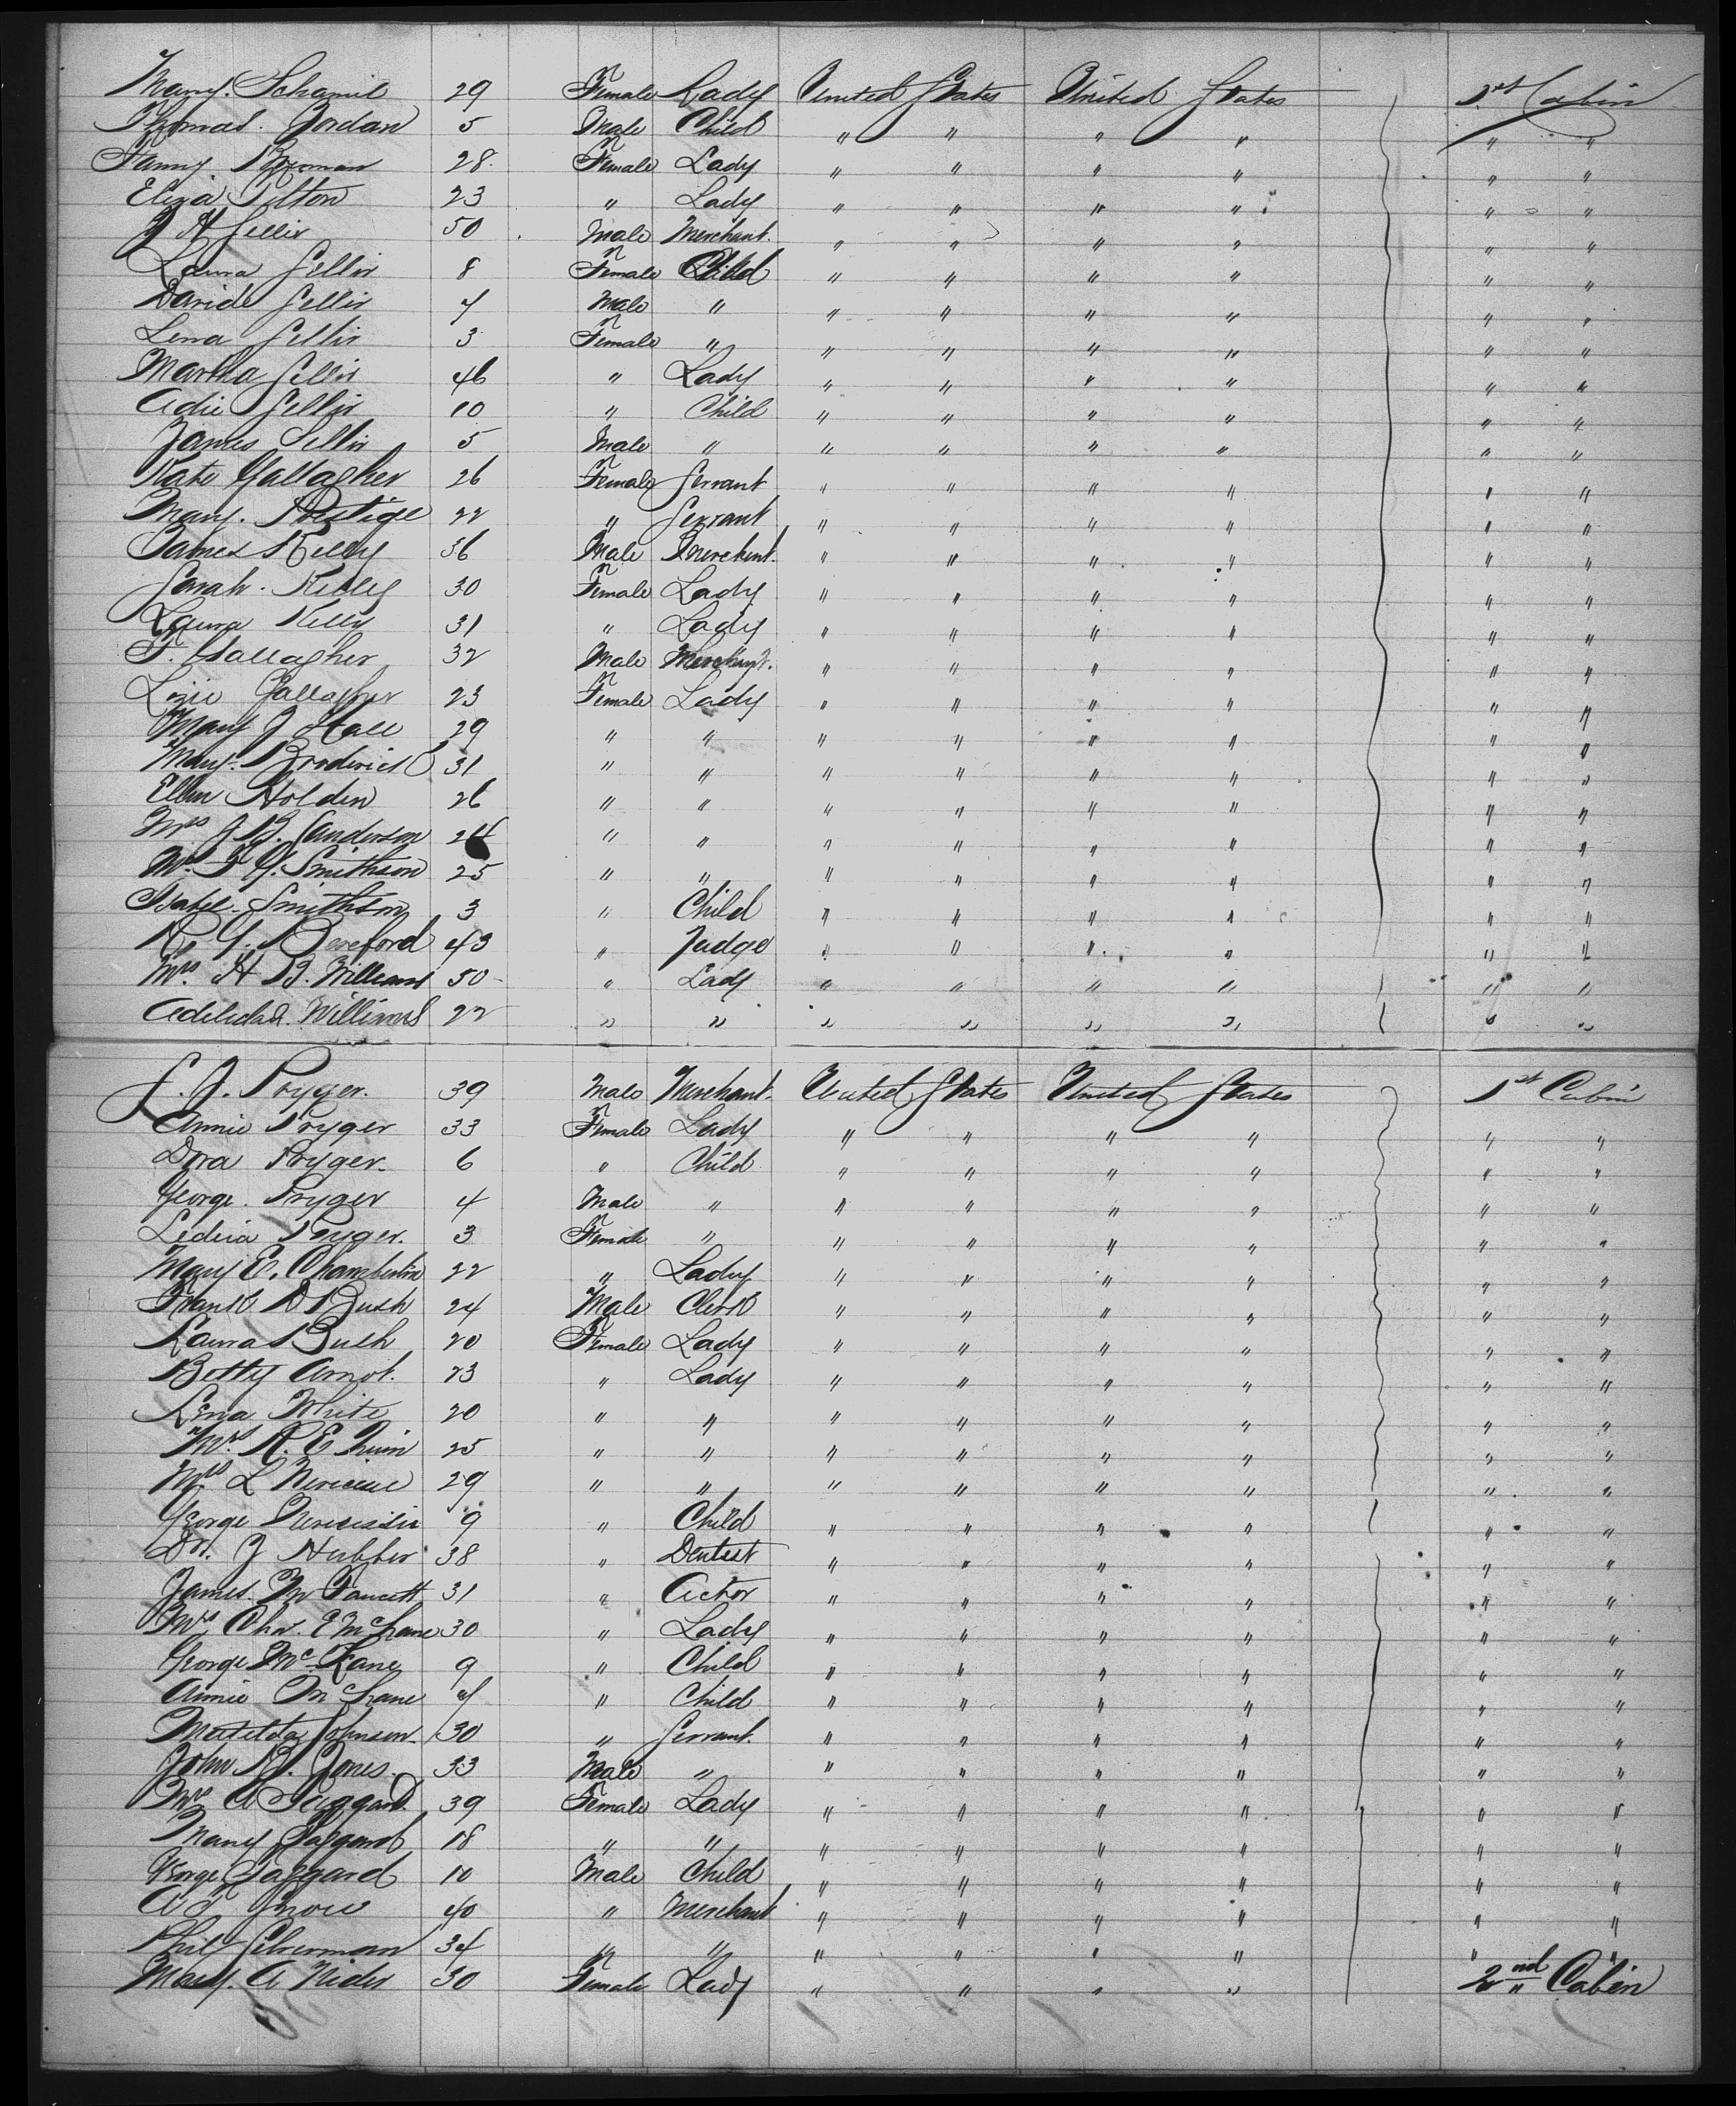 Mary. Schamil 29 Female Lady United States United States 1st Cabin
Thomas. Jordan 5 Male Child " " " " " "
Fanny. Bowman 28. Female Lady " " " " " "
Eliza Tilton 23 " Lady " " " " " "
J H Gellis 50 Male Merchant. " " " " " "
Laura Gellis 8 Female Child " " " " " "
David Gellis 7 Male " " " " " " "
Lena Gellis 3 Female " " " " " " "
Martha Gellis 46 " Lady " " " " " "
Adie Gellis 10 " Child " " " " " "
James Gellis 5 Male " " " " " " "
Kate Gallagher 26 Female Servant " " " " " "
Mary. Prestige 22 " Servant " " " " " "
James Kelly 36 Male Merchant. " " " " " "
Sarah. Kelly 30 Female Lady " " " " " "
Laura Kelly 31 " Lady " " " " " "
T. Gallagher 32 Male Merchant. " " " " " "
Lizzie Gallagher 23 Female Lady " " " " " "
Mary J Hall 29 " " " " " " " "
Mary. Broderick 31 " " " " " " " "
Ellen Holden 26 " " " " " " " "
Mrs J B. Sanderson 24 " " " " " " " "
Mrs. T Y. Smithson 25 " " " " " " " "
Isabel. Smithson 3 " Child " " " " " "
R. Y. Bereford 43 " Judge " " " " " "
Mrs. H B. Williams 50 " Lady " " " " " "
Adelida. Williams 22 " " " " " " " "
S. J. Pryger. 39 Male Merchant. United States United States 1st Cabin
Annie Pryger 33 Female Lady " " " " " "
Dora Pryger. 6 " Child " " " " " "
George. Pryger 4 Male " " " " " " "
Ledicia Pryger. 3 Female " " " " " " "
Mary E. Chamberlin 22 " Lady " " " " " "
Frank D Bush 24 Male Clerk " " " " " "
Laura Bush 20 Female Lady " " " " " "
Betty Arnot. 23 " Lady " " " " " "
Lena White 20 " " " " " " " "
Mrs. R. E 25 " " " " " " " "
Mrs L 29 " " " " " " " "
George 9 " Child " " " " " "
Dr. J 38 " Dentist " " " " " "
James. M Faucett 31 " Actor " " " " " "
Mrs Chas. E McShane 30 " Lady " " " " " "
George McShane 9 " Child " " " " " "
Annie McShane 7 " Child " " " " " "
Matilda Johnson. 30 " Servant. " " " " " "
John R. Jones. 33 Male " " " " " " "
Mrs A Taggard. 39 Female Lady " " " " " "
Mary Taggard 18 " " " " " " " "
George Taggard 10 Male Child " " " " " "
A T 40 " Merchant " " " " " "
Phil Silverman 34 " " " " " " " "
Mary. A Nider 30 Female Lady " " " " 2nd Cabin